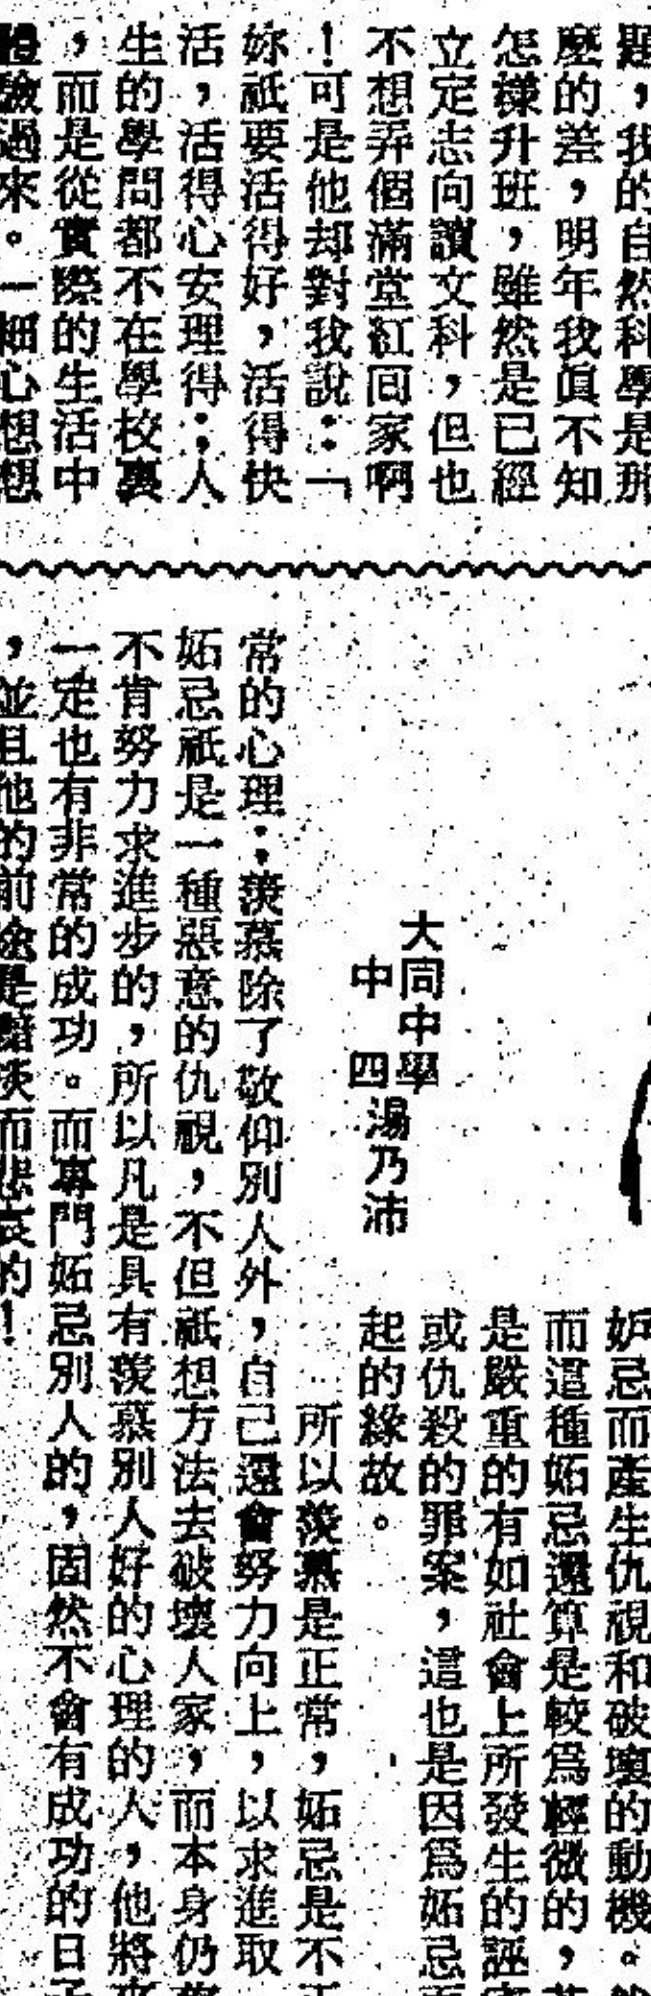 題，我的自然科學是那
麼的差，明年我眞不知
怎樣升班，雖然是已經
立定志向讀文科，但也
不想弄個滿堂紅回家啊
！可是他却對我說：「
妳祇要活得好，活得快
活，活得心安理得；人
生的學問都不在學校裏
，而是從實際的生活中
體驗過來。一細心想想
大同中學
中四
湯乃沛
妒忌而產生仇視和破壞的動機。
而這種妬忌還算是較爲輕微的，
是嚴重的有如社會上所發生的誣
或仇殺的罪案，這也是因爲妬忌而
起的緣故。
所以羨慕是正常，妬忌是不正
常的心理：羨慕除了敬仰別人外，自己還會努力向上，以求進取
妬忌祇是一種惡意的仇視，不但祇想方法去破壞人家，而本身仍
不肯努力求進步的，所以凡是具有羨慕別人好的心理的人，他將來
一定也有非常的成功。而專門妬忌別人的，固然不會有成功的日子
，並且他的前途是黯淡而悲哀的！